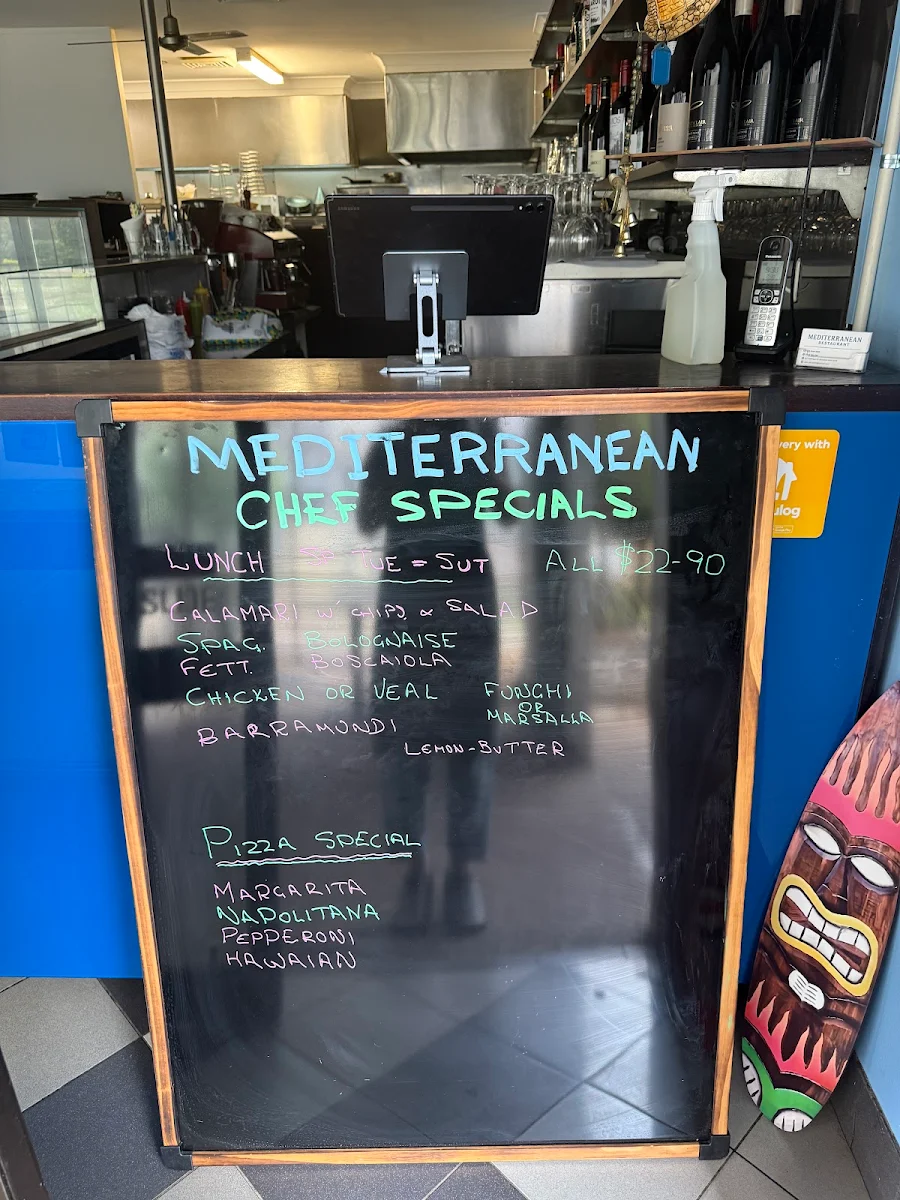 SAMSUNG
Panasonic
MEDITERRANEAN
RESTAURANT
very with
ulog
MEDITERRANEAN
CHEF SPECIALS
LUNCH SP TUE = SUT ALL $22-90
CALAMARI W' CHIPS & SALAD
SPAG. BOLOGNAISE
FETT. BOSCAIOLA
CHICKEN OR VEAL FUNGHI
OR
MARSALLA
BARRAMUNDI
LEMON-BUTTER
PIZZA SPECIAL
MARGARITA
NAPOLITANA
PEPPERONI
HAWAIAN